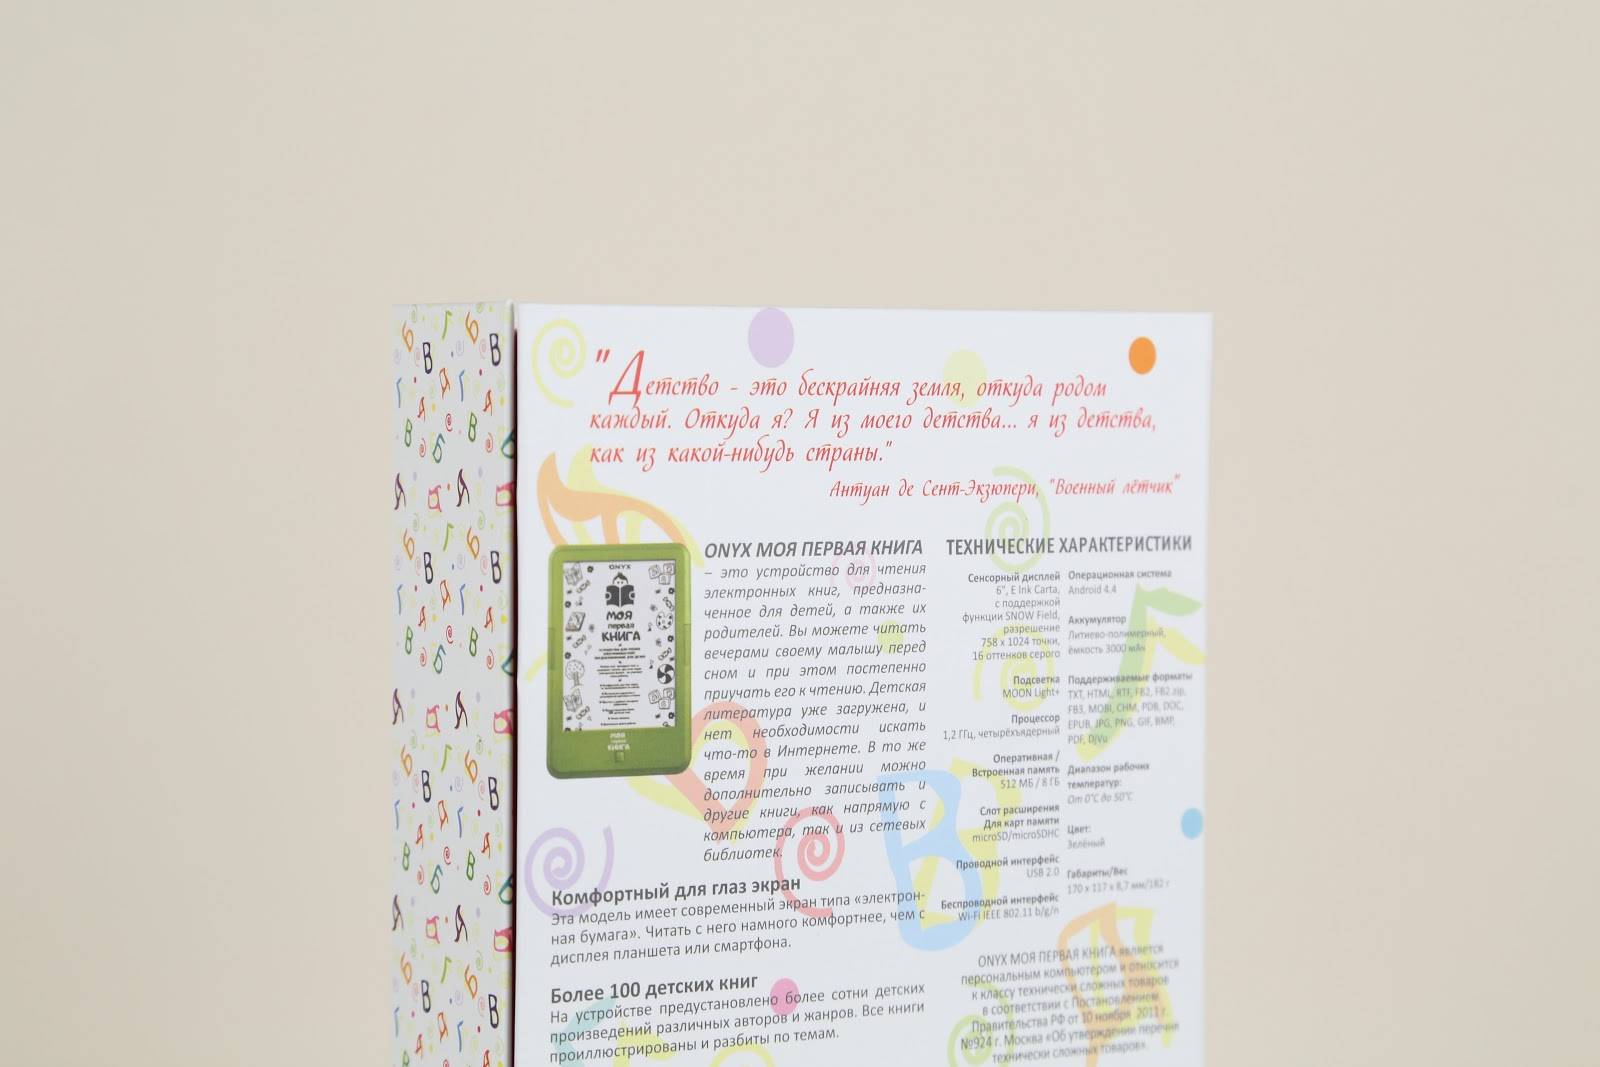 "Детство - это бескрайняя земля, откуда родом
каждый. Откуда я? Я из моего детства... я из детства,
как из какой-нибудь страны."
Антуан де Сент-Экзюпери, "Военный лётчик"
ONYX
МОЯ
первая
КНИГА
МОЯ
первая
КНИГА
ONYX МОЯ ПЕРВАЯ КНИГА
– это устройство для чтения
электронных книг, предназна-
ченное для детей, а также их
родителей. Вы можете читать
вечерами своему малышу перед
сном и при этом постепенно
приучать его к чтению. Детская
литература уже загружена, и
нет необходимости искать
что-то в Интернете. В то же
время при желании можно
дополнительно записывать и
другие книги, как напрямую с
компьютера, так и из сетевых
библиотек.
Комфортный для глаз экран
Эта модель имеет современный экран типа «электрон-
ная бумага». Читать с него намного комфортнее, чем с
дисплея планшета или смартфона.
Более 100 детских книг
На устройстве предустановлено более сотни детских
произведений различных авторов и жанров. Все книги
проиллюстрированы и разбиты по темам.
ТЕХНИЧЕСКИЕ ХАРАКТЕРИСТИКИ
Сенсорный дисплей
6", E Ink Carta,
с поддержкой
функции SNOW Field,
разрешение
758 x 1024 точки,
16 оттенков серого
Подсветка
MOON Light+
Процессор
1,2 ГГц, четырёхъядерный
Оперативная /
Встроенная память
512 МБ / 8 ГБ
Слот расширения
Для карт памяти
microSD/microSDHC
Проводной интерфейс
USB 2.0
Беспроводной интерфейс
Wi-Fi IEEE 802.11 b/g/n
Операционная система
Android 4.4
Аккумулятор
Литиево-полимерный,
ёмкость 3000 мАч
Поддерживаемые форматы
TXT, HTML, RTF, FB2, FB2.zip,
FB3, MOBI, CHM, PDB, DOC,
EPUB, JPG, PNG, GIF, BMP,
PDF, DjVu
Диапазон рабочих
температур:
От 0°C до 50°C
Цвет:
Зелёный
Габариты/Вес
170 x 117 x 8,7 мм/182 г
ONYX МОЯ ПЕРВАЯ КНИГА является
персональным компьютером и относится
к классу технически сложных товаров
в соответствии с Постановлением
Правительства РФ от 10 ноября 2011 г.
№924 г. Москва «Об утверждении перечня
технически сложных товаров».